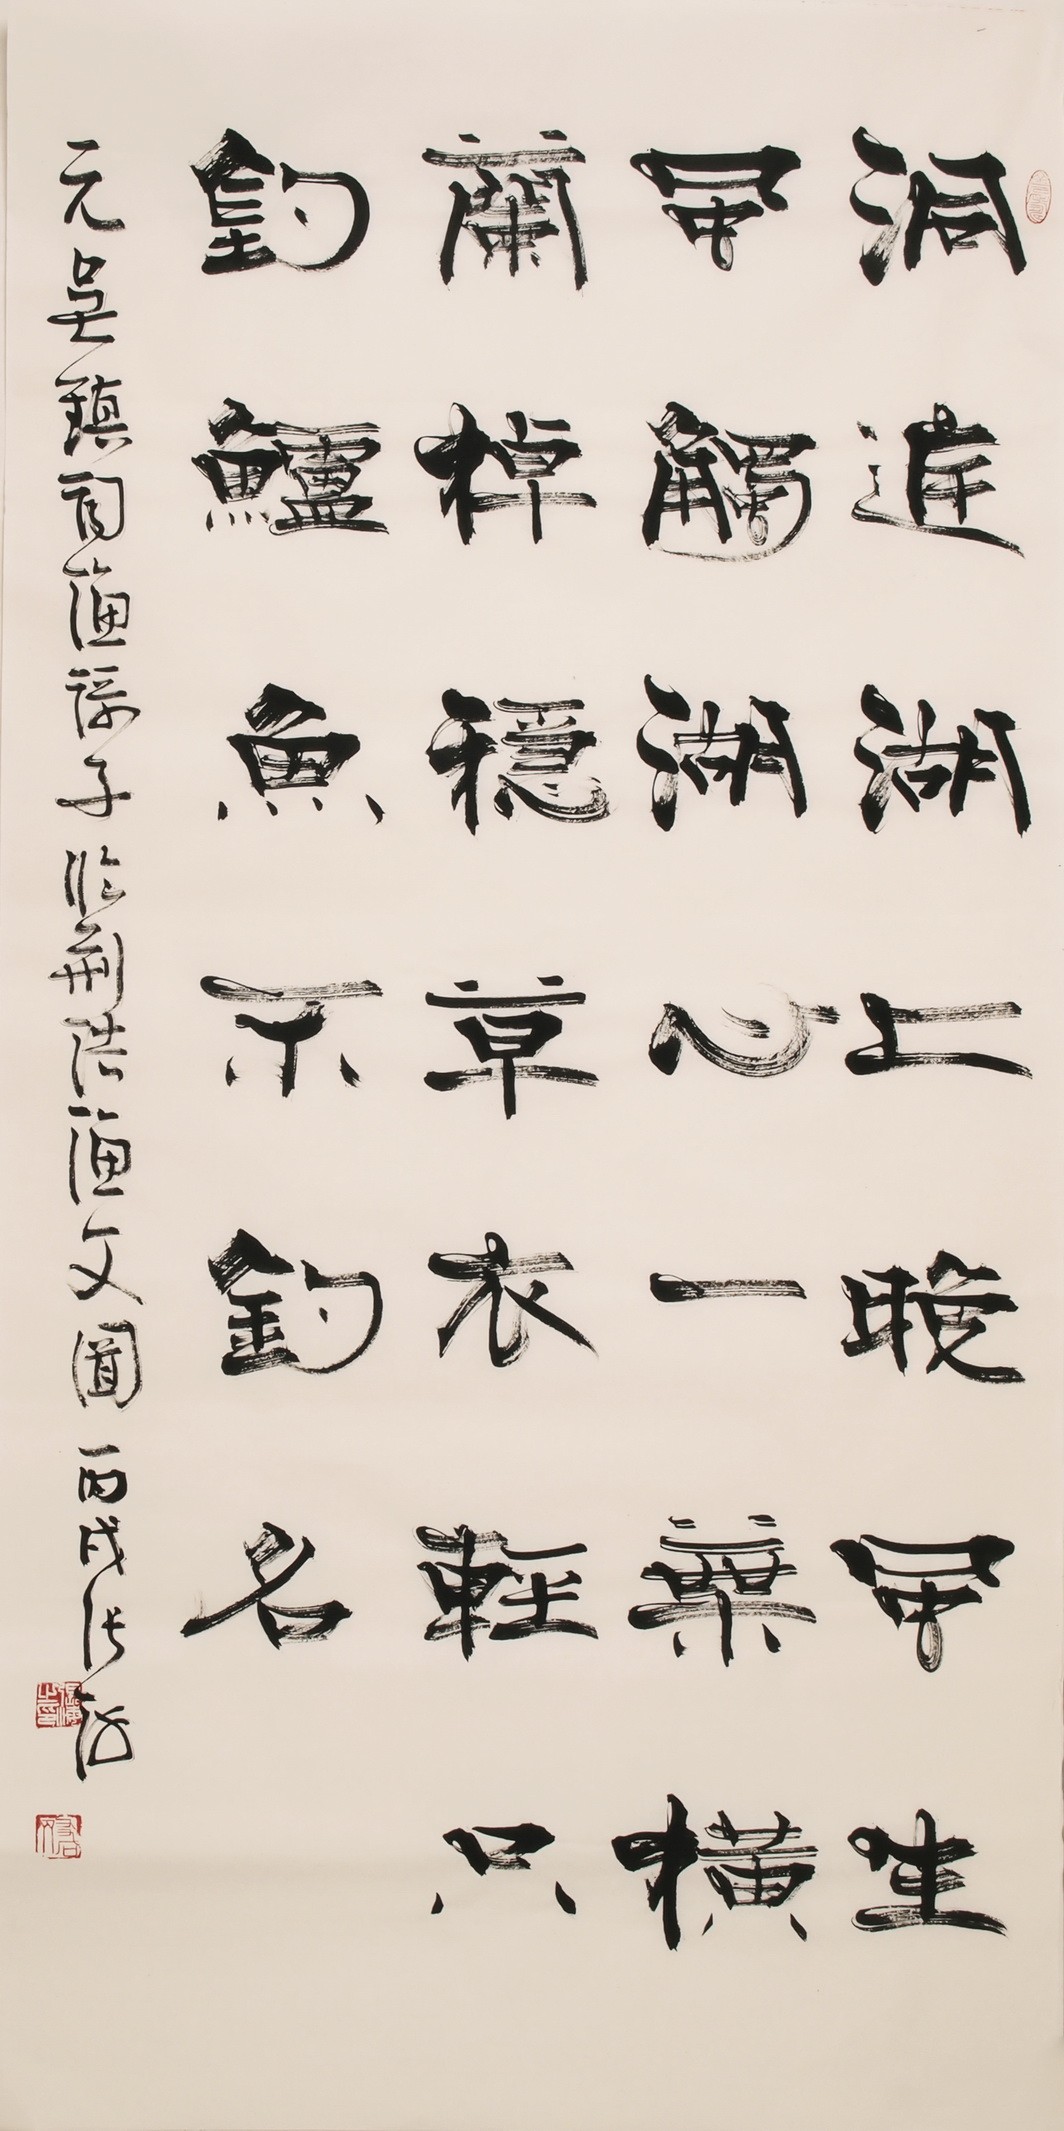 洞庭湖上晚風生
風觸湖心一葉橫
蘭棹穩草衣輕只
釣鱸魚不釣名
元吳鎮漁歌子臨荊浩漁父圖丙戌張海